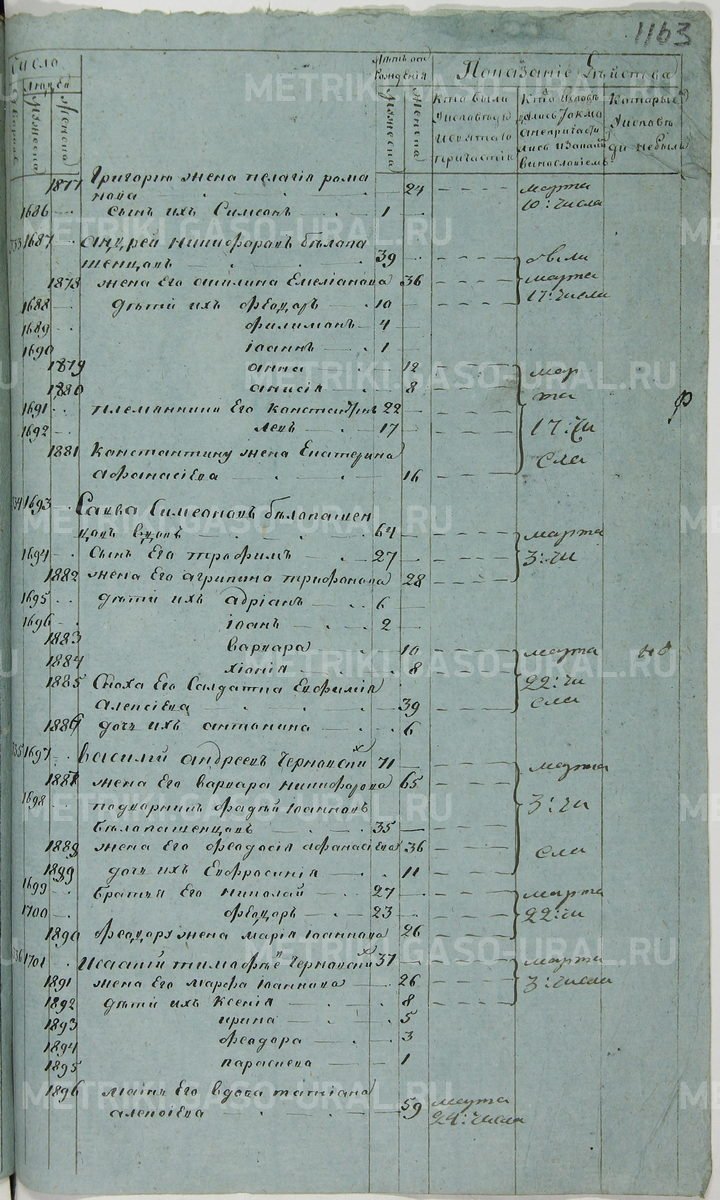 1163
Число людей
Мужеска
Женска
Лѣтъ от рожденія
Мужеска
Женска
Показаніе дѣйства
Кто были у исповѣди и святаго причастія
Кто исповѣдались токмо а не причастились и за какимъ винословіемъ
Которые у исповѣди не были
1877 Григорію жена пелагія рома
нова 24 марта
1686 сынъ ихъ Симеонъ 1 10: числа
1687 андрей никифоровъ бѣлапа
шенцовъ 39
1878 жена Его акилина Емелianова 36 марта
1688 дѣтій ихъ Феодоръ 10 17: числа
1689 филимонъ 4
1690 іоаннъ 1
1879 анна 12 мар
1880 анисія 8 та
1691 племянники Его Константинъ 22
1692 левъ 17 17: чи
1881 Константину жена Екатерина сла
афанасіева 16
1693 Савва Симеоновъ бѣлапашен
цовъ вдовъ 64 марта
1694 Сынъ Его трофимъ 27 3: чи
1882 жена Его агрипина трифонова 28
1695 дѣтій ихъ адріанъ 6
1696 іоанъ 2
1883 варвара 10 марта
1884 хіонія 8 22: чи
1885 Сноха Его Солдатка Евфимія сла
Алексіева 39
1886 дочь ихъ антонина 6
1697 василій андреевъ Черновских 71 марта
1887 жена Его варвара никифорова 65
1698 подворникъ фадѣй іоанновъ 3: чи
бѣлапашенцовъ 35
1888 жена Его феодосія афанасіева 36 сла
1889 дочь ихъ Евфросинія 11
1699 братья Его николай 27 марта
1700 феодоръ 23 22: чи
1890 феодору жена марія іоаннова 26
1701 Исаакій тимофѣе Черновских 37 марта
1891 жена Его марфа іоаннова 26 3: числа
1892 дѣтій ихъ Ксенія 8
1893 ирина 5
1894 феодора 3
1895 параскева 1
1896 мать Его вдова татіана
алексіева 59 марта
22: числа